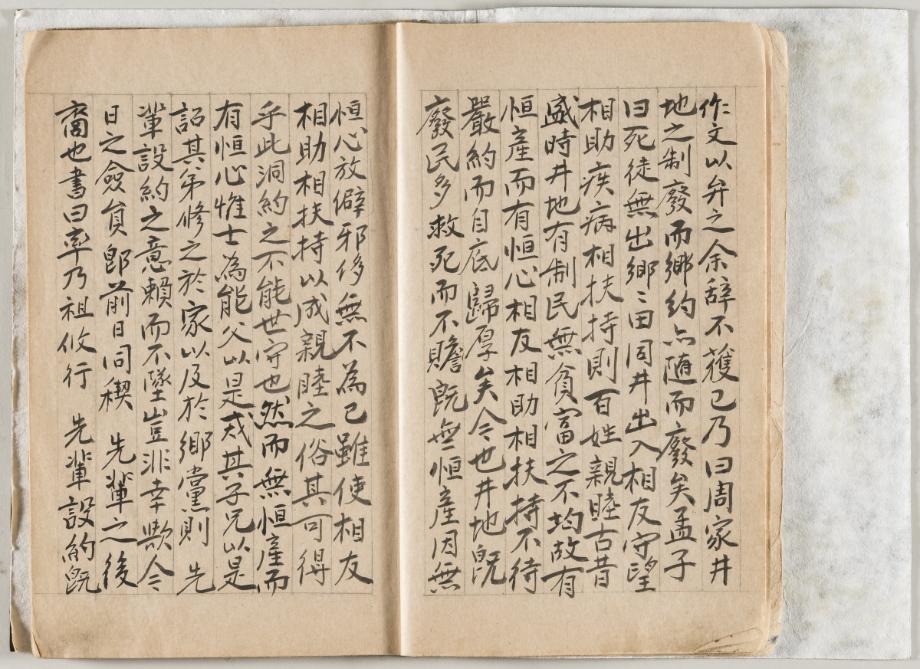 作文以弁之余辞不獲已乃曰周家井
地之制廢而鄉約亦随而廢矣孟子
曰死徒無出鄉〻田同井出入相友守望
相助疾病相扶持則百姓親睦古昔
盛時井地有制民無貧富之不均故有
恒產而有恒心相友相助相扶持不待
嚴約而自底歸厚矣今也井地既
廢民多救死而不贍既無恒產因無
恒心放僻邪侈無不為已雖使相友
相助相扶持以成親睦之俗其可得
乎此洞約之不能世守也然而無恒產而
有恒心惟士為能父以是戒其子兄以是
詔其弟修之於家以及於鄉黨則 先
輩設約之意賴而不墜豈非幸歟今
日之僉員卽前日同稧 先輩之後
裔也書曰率乃祖攸行 先輩設約既